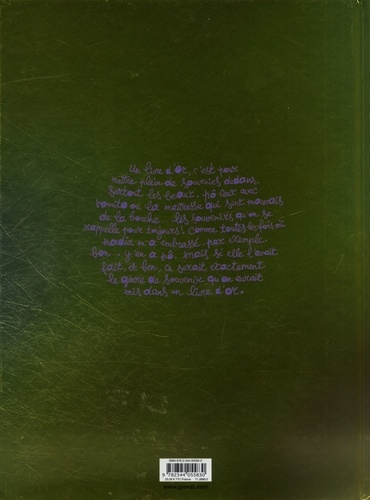 Un livre d'Or, c'est pour
mettre plein de souvenirs dedans.
Surtout les beaux. pô ceux avec
bonito ou la maîtresse qui sent mauvais
de la bouche. les souvenirs qu'on se
rappelle pour toujours! comme toutes les fois où
nadia m'a embrassé, par exemple.
bon - y'en a pô, mais si elle l'avait
fait, et ben, ça serait exactement
le genre de souvenir qu'on aurait
mis dans un livre d'or.
9 782344 055830